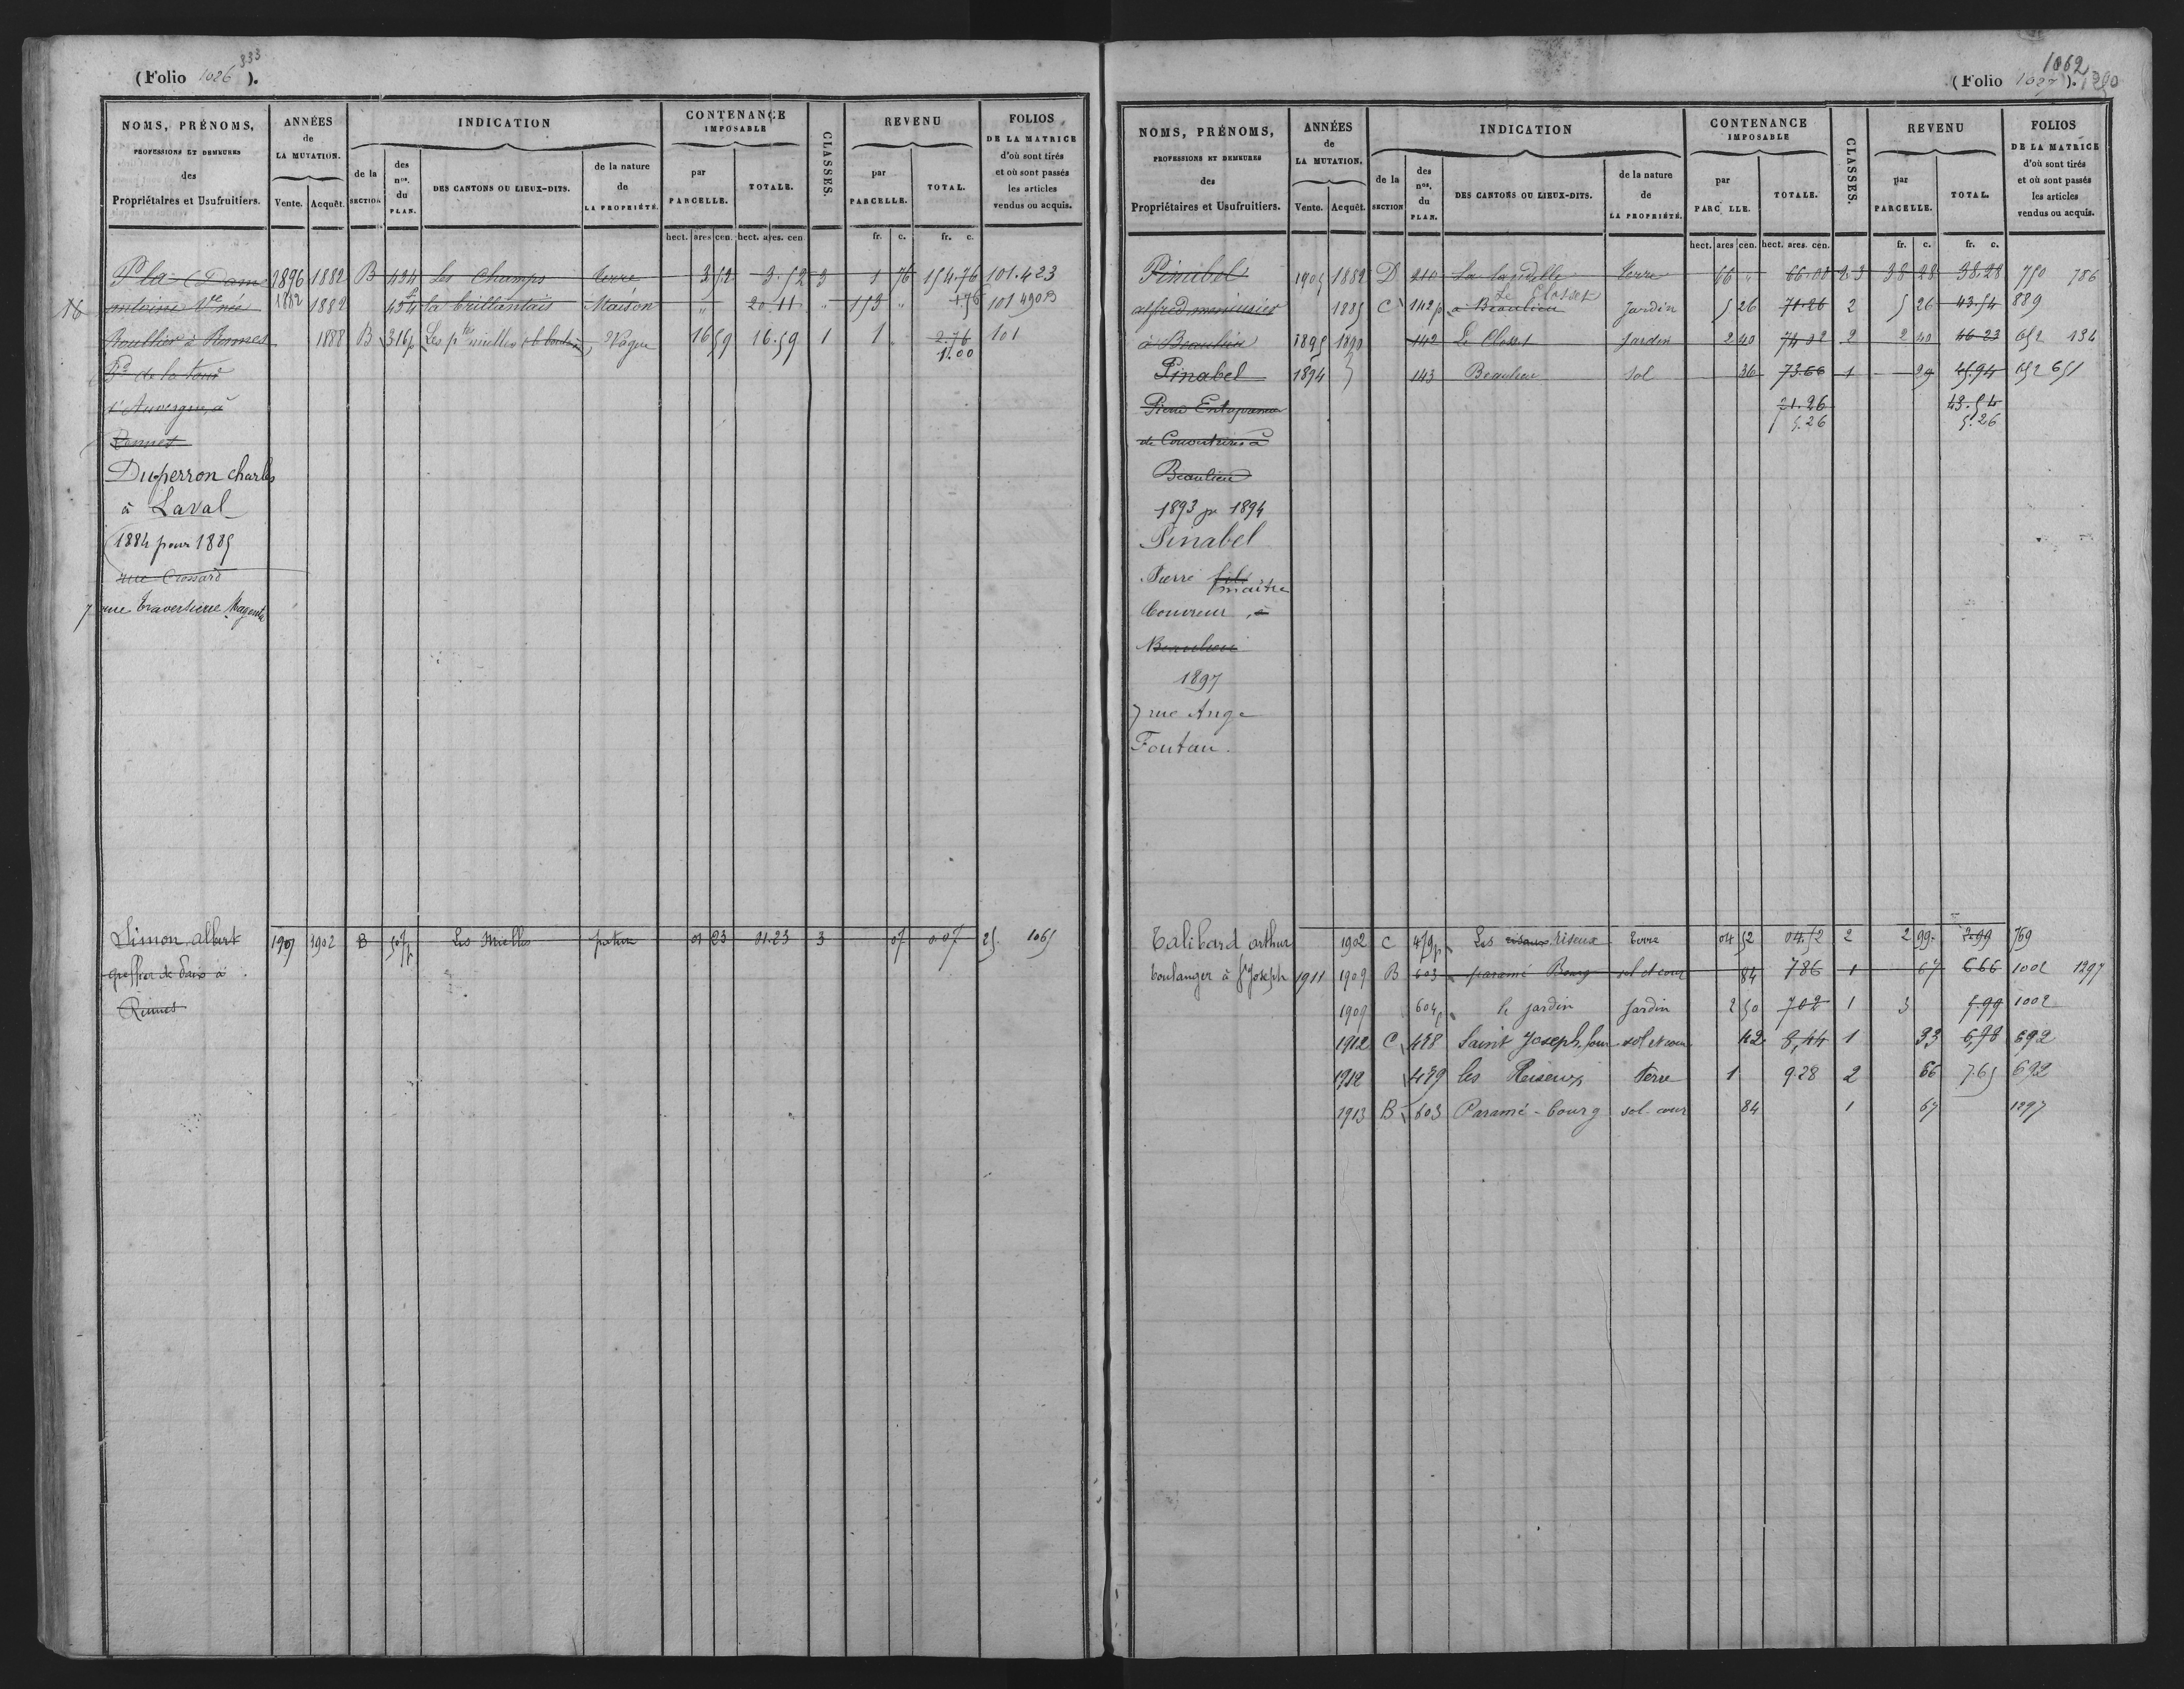 (Folio 1026 333 ).
NOMS, PRÉNOMS, PROFESSIONS ET DEMEURES des Propriétaires et Usufruitiers.
ANNÉES de LA MUTATION. Vente. Acquêt.
INDICATION de la SECTION des nos. du PLAN. DES CANTONS OU LIEUX-DITS. de la nature de LA PROPRIÉTÉ.
CONTENANCE IMPOSABLE par PARCELLE. TOTALE.
CLASSES.
REVENU par PARCELLE. TOTAL.
FOLIOS DE LA MATRICE d'où sont tirés et où sont passés les articles vendus ou acquis.
hect. ares cen. hect. ares. cen. fr. c. fr. c.
Pla 1896 1882 B 434 Les Champs terre 3 52 3.52 3 1 76 154.76 101.423
1882 1882 454 la brillantais Maison " 20 11 " 153 " 1.76 101 490B
Roullier à Rennes 1888 B 316p Les ptes mielles Vague 16 59 16.59 1 1 " 2.76 101
1.00
de la tour
d'Auvergne, à
Rennes
Duperron Charles
à Laval
1884 pour 1885
rue Crossard
7 rue Traversière Magenta
Simon Albert 1909 1902 B 507p Les Mielles pature 01 23 01.23 3 07 0.07 25 1065
greffier de Paix à
Rennes
(Folio 1027 ). 1062 1290
NOMS, PRÉNOMS, PROFESSIONS ET DEMEURES des Propriétaires et Usufruitiers.
ANNÉES de LA MUTATION. Vente. Acquêt.
INDICATION de la SECTION des nos. du PLAN. DES CANTONS OU LIEUX-DITS. de la nature de LA PROPRIÉTÉ.
CONTENANCE IMPOSABLE par PARC LLE. TOTALE.
CLASSES.
REVENU par PARCELLE. TOTAL.
FOLIOS DE LA MATRICE d'où sont tirés et où sont passés les articles vendus ou acquis.
hect. ares cen. hect. ares. cen. fr. c. fr. c.
Pinabel 1905 1882 D 210 terre 66 " 66.00 2.3 38 28 38.28 750 786
alfred menuisier 1885 C 142p à Beaulieu Le Closset Jardin 5 26 71.26 2 5 26 43.54 889
à Beaulieu 1895 1890 142 Le Closset Jardin 2 40 74 02 2 2 40 46 23 652 134
Pinabel 1894 143 Beaulieu sol 36 73.66 1 29 45.94 652 651
Pierre Entrepreneur 71.26 43.54
de Couvertures à 5.26 5.26
Beaulieu
1893 pr 1894
Pinabel
Pierre fils
maître
Couvreur, à
Beaulieu
1897
7 rue Ange
Fontan.
Talibard arthur 1902 C 479p Les riseux terre 04 52 04.52 2 2 99 2.99 769
boulanger à St Joseph 1911 1909 B 603 paramé Bourg sol et cour 84 786 1 67 6 66 1002 1297
1909 604p le jardin Jardin 2 50 702 1 3 5.99 1002
1912 C 498 Saint Joseph, four sol et cour 42 8,44 1 33 6,78 692
1912 499 les Reseux Terre 1 9.28 2 66 7.65 692
1913 B 603 Paramé-bourg sol. cour 84 1 67 1297